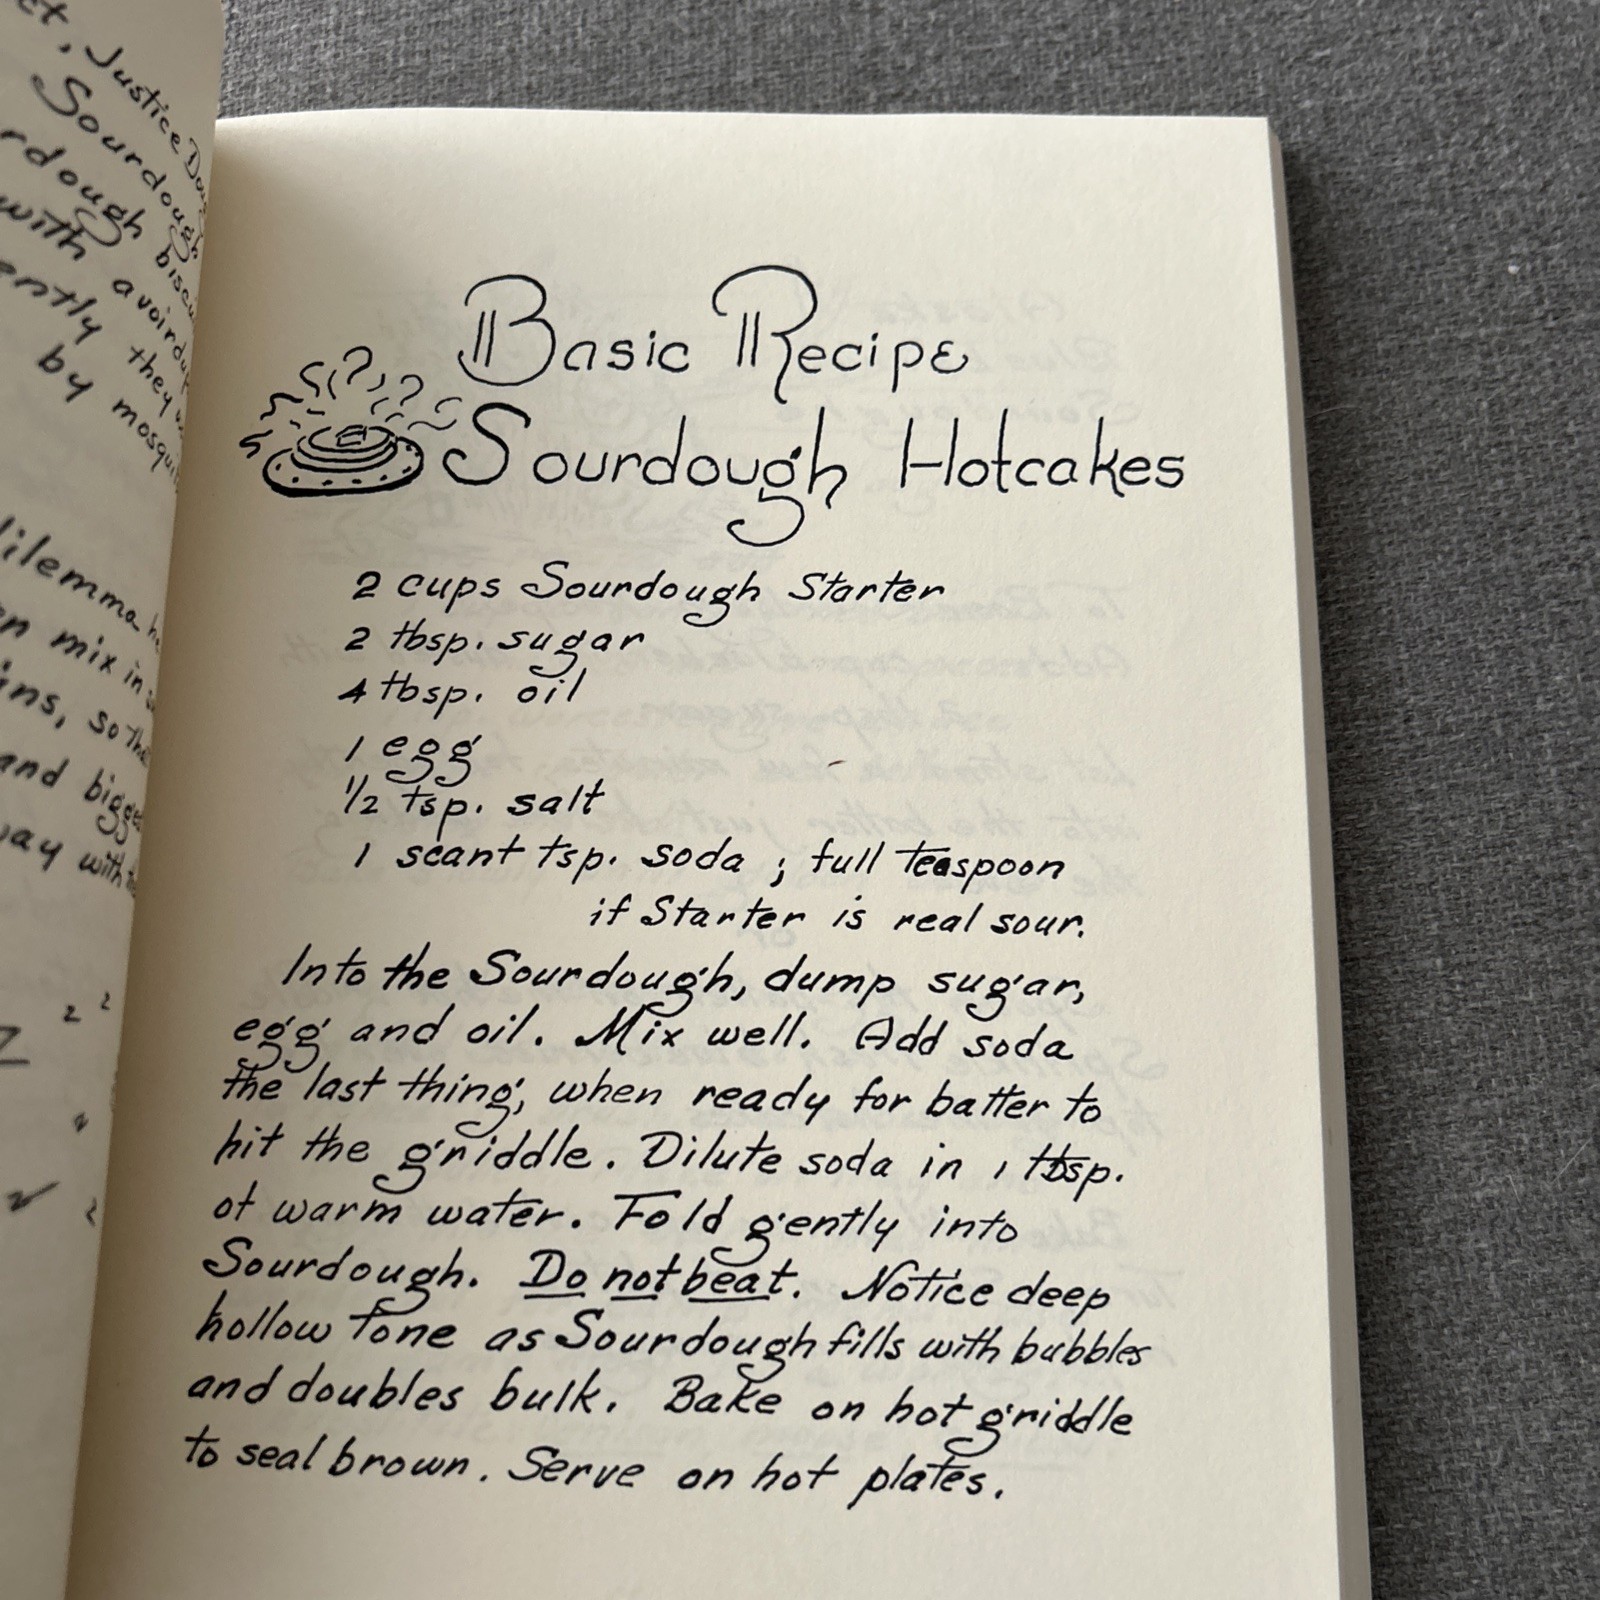 Justice
Sourdough
with
by
mix in
and
with
Basic Recipe
Sourdough Hotcakes
2 cups Sourdough Starter
2 tbsp. sugar
4 tbsp. oil
1 egg
1/2 tsp. salt
1 scant tsp. soda ; full teaspoon
if Starter is real sour.
Into the Sourdough, dump sugar,
egg and oil. Mix well. Add soda
the last thing, when ready for batter to
hit the griddle. Dilute soda in 1 tbsp.
of warm water. Fold gently into
Sourdough. Do not beat. Notice deep
hollow tone as Sourdough fills with bubbles
and doubles bulk. Bake on hot griddle
to seal brown. Serve on hot plates.